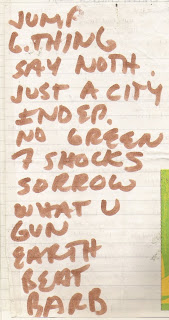 JUMP
G.THING
SAY NOTH.
JUST A CITY
ENDEP.
NO GREEN
7 SHOCKS
SORROW
WHAT U
GUN
EARTH
BEAT
BARB